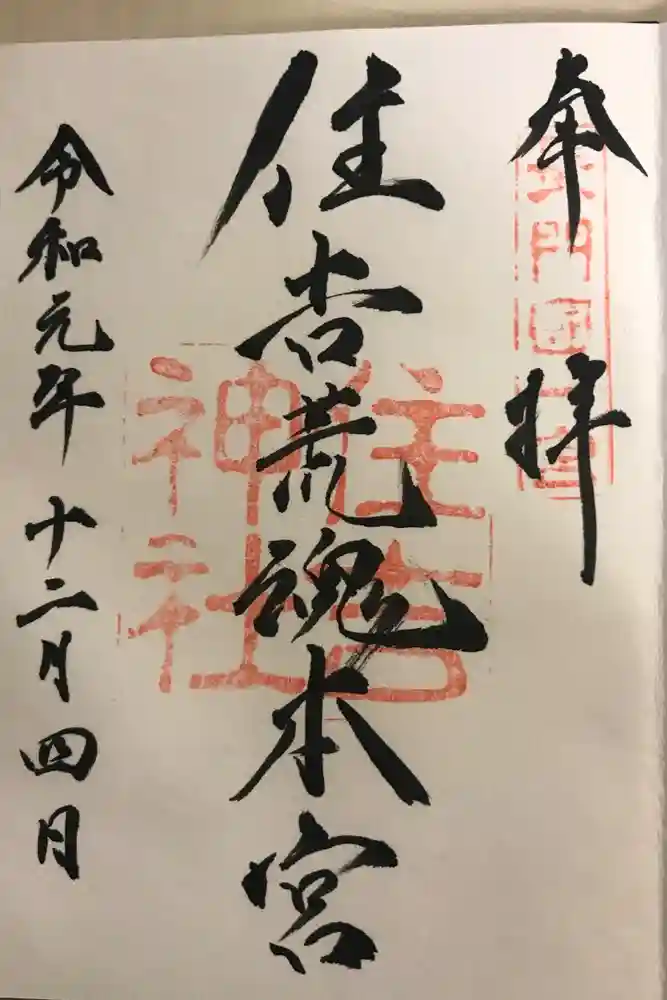 奉拝
長門国一宮
住吉荒魂本宮
住吉
神社
令和元年十二月四日